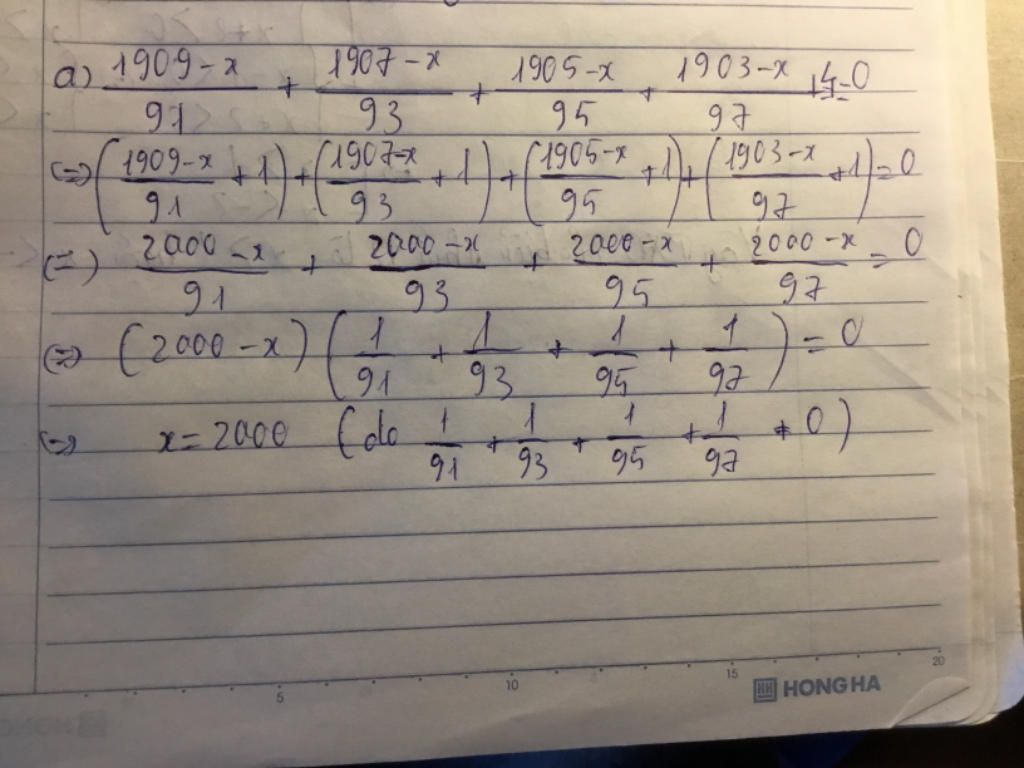 a) \frac{1909-x}{91} + \frac{1907-x}{93} + \frac{1905-x}{95} + \frac{1903-x}{97} + 4 = 0
(=) (\frac{1909-x}{91} + 1) + (\frac{1907-x}{93} + 1) + (\frac{1905-x}{95} + 1) + (\frac{1903-x}{97} + 1) = 0
(=) \frac{2000-x}{91} + \frac{2000-x}{93} + \frac{2000-x}{95} + \frac{2000-x}{97} = 0
(=) (2000-x) (\frac{1}{91} + \frac{1}{93} + \frac{1}{95} + \frac{1}{97}) = 0
(=) x = 2000 (do \frac{1}{91} + \frac{1}{93} + \frac{1}{95} + \frac{1}{97} ≠ 0)
5 10 15 20
HONG HA